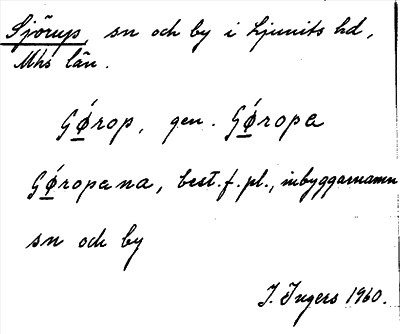 Sjörup, sn och by i Ljunits hd,
Mhs län.
Gǿ̱rop, gen. Gǿ̱ropa
Gǿ̱ropana, best. f. pl., inbyggarnamn
sn och by
I. Ingers 1960.